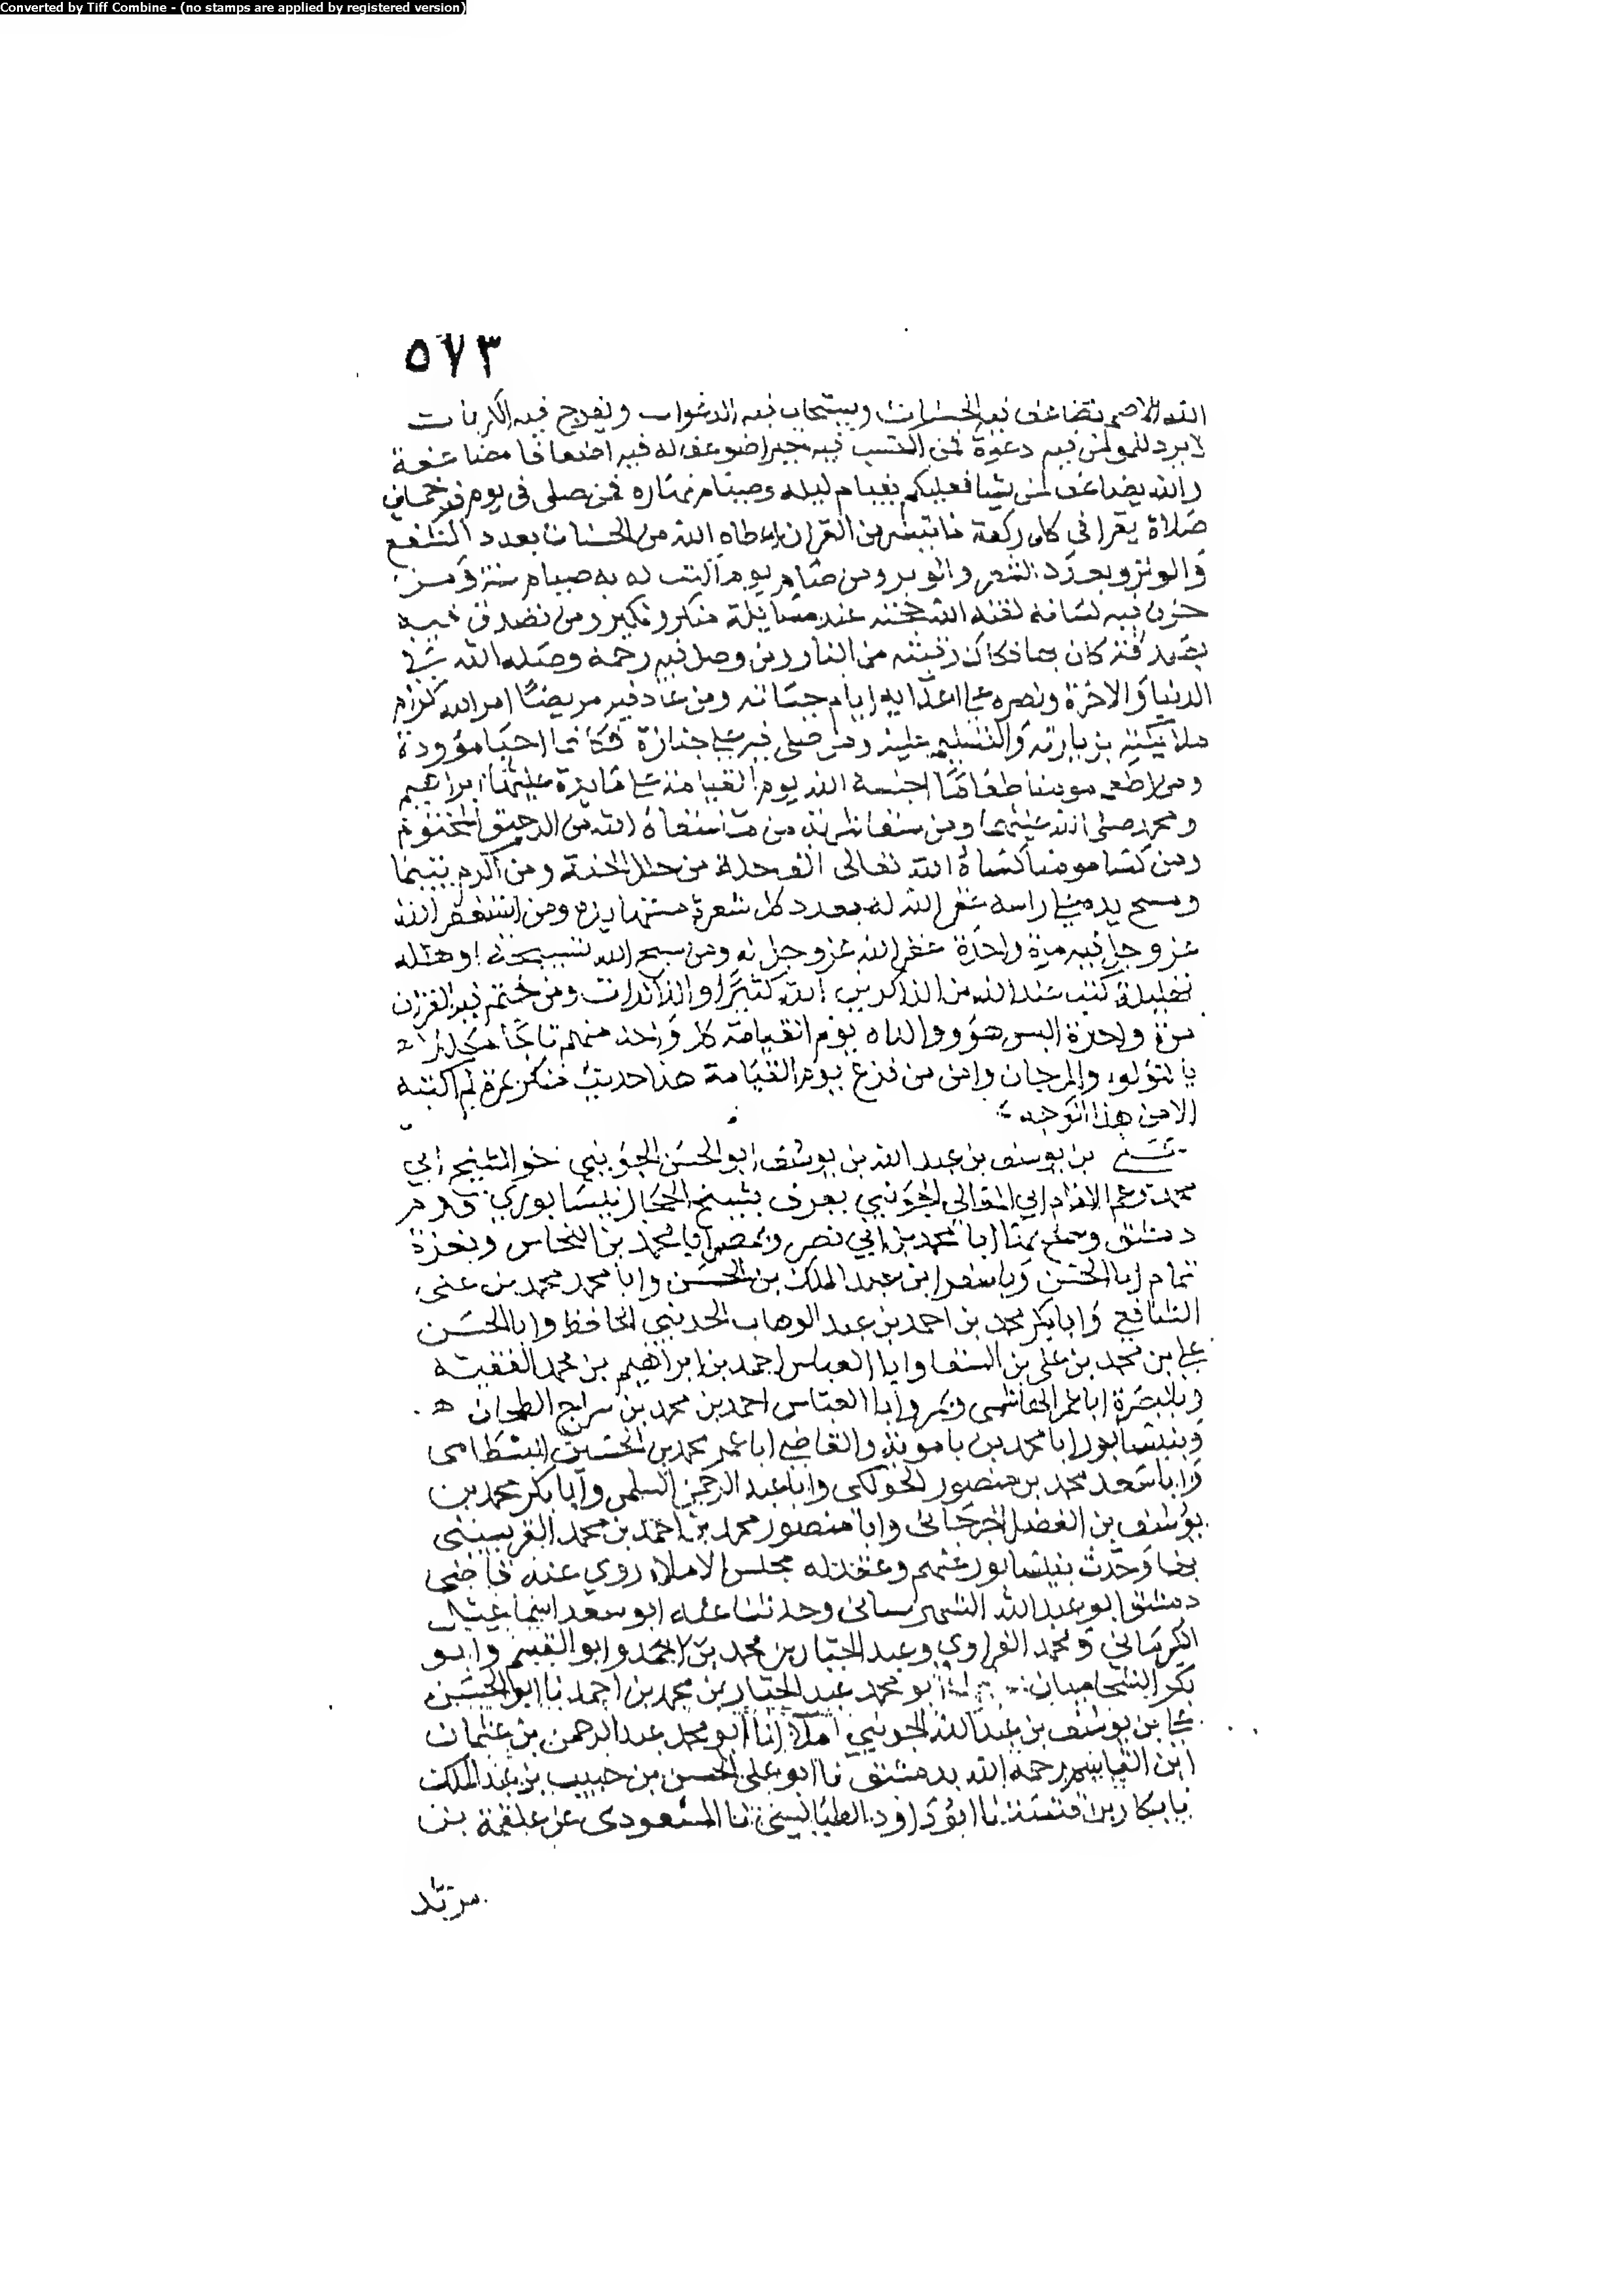 Converted by Tiff Combine - (no stamps are applied by registered version)
٥٧٣
الله الاصم تضاعف فيه الحسنات ويستجاب فيه الدعوات ويفرج فيه الكربات
لا يرد للمومن فيه دعوة فمن اكتسب فيه خيرا ضوعف له فيه اضعافا مضاعفة
والله يضاعف لمن يشا فعليكم بقيام ليله وصيام نهاره فمن صلى في يوم فيه خمسين
صلاة يقرا في كل ركعة ما تيسر من القران اعطاه الله من الحسنات بعدد الشفع
والوتر وبعدد الشعر والوبر ومن صام يوما كتب له به صيام سنة ومن
خزن فيه لسانه لقنه الله حجته عند مسائلة منكر ونكير ومن تصدق فيه
بصدقة كان بها فكاك رقبته من النار ومن وصل فيه رحمه وصله الله في
الدنيا والاخرة ونصره على اعدايه ايام حياته ومن عاد فيه مريضا امر الله كرام
ملائكته بزيارته والتسليم عليه ومن صلى فيه على جنازة فكانما احيا مؤودة
ومن اطعم مومنا طعاما اجلسه الله يوم القيامة على مايدة عليها ابراهيم
ومحمد صلى الله عليهما ومن سقا شربة من ما سقاه الله من الرحيق المختوم
ومن كسا مومنا كساه الله تعالى الف حلة من حلل الجنة ومن اكرم يتيما
ومسح يده على راسه غفر الله له بعدد كل شعرة مستها يده ومن استغفر الله
عز وجل فيه مرة واحدة غفر الله عز وجل له ومن سبح الله تسبيحة او هلله
تهليلة كتب عند الله من الذاكرين الله كثيرا والذاكرات ومن ختم فيه القران
مرة واحدة البس هو ووالداه يوم القيامة كل واحد منهم تاجا مكللا
باللؤلو والمرجان وامن من فزع يوم القيامة هذا حديث منكر بمرة لم اكتبه
الا من هذا الوجه
علي بن يوسف بن عبد الله بن يوسف ابو الحسن الجويني اخو الشيخ ابي
محمد وعم الامام ابي المعالي الجويني يعرف بشيخ الحجاز نيسابوري قدم
دمشق وسمع بها ابا محمد بن ابي نصر وبمصر ابا محمد بن النحاس وبغزة
تمام ابا الحسن وباسفراين عبد الملك بن الحسن وابا محمد محمد بن على
الشافعي وابا بكر محمد بن احمد بن عبد الوهاب الحديثي الحافظ وابا الحسن
علي بن محمد بن على بن السقا وابا العباس احمد بن ابراهيم بن محمد الفقيه
وبالبصرة ابا عمر الهاشمى وبمرو ابا العباس احمد بن محمد بن سراج الطحان ه
وبنيسابور ابا محمد بن بامويه والقاضي ابا عمر محمد بن الحسين البسطامى
وابا سعد محمد بن منصور الجولكى وابا عبد الرحمن السلمى وابا بكر محمد بن
يوسف بن الفضل الجرجانى وابا منصور محمد بن احمد بن محمد
بها وحدث بنيسابور عنهم وعقد له مجلس الاملاء روى عنه قاضى
دمشق ابو عبد الله الشهرستانى وحدثنا عنه ابو سعد اسماعيل
الكرماني ومحمد الفراوي وعبد الجبار بن محمد بن احمد وابو القسم وابو
بكر الشحاميان ابو محمد عبد الجبار بن محمد بن احمد نا ابو الحسن
علي بن يوسف بن عبد الله الجويني املاء انا ابو محمد عبد الرحمن بن عثمان
ابن القاسم رحمه الله بدمشق نا ابو على الحسن بن حبيب بن عبد الملك
نا بكار بن قتيبة نا ابو داود الطيالسي نا المسعودى عن علقمة بن
مرثد